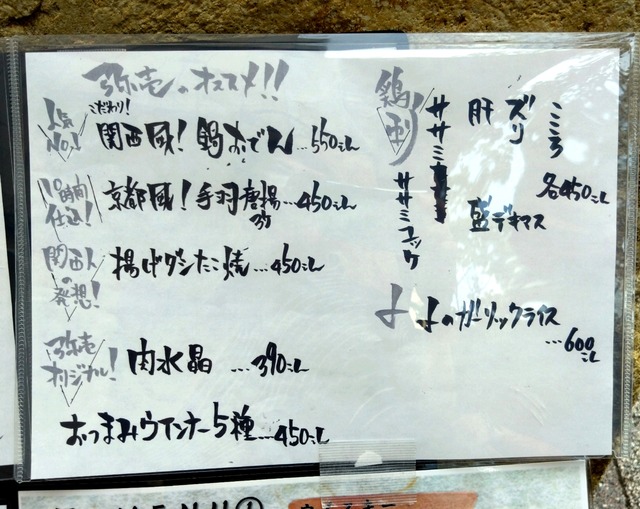 弥壱のオススメ!!
人気No.1!
こだわり!
関西風!鍋おでん…550えん
10時間仕込!
京都風!手羽唐揚…450えん
関西人の発想!
揚げダシたこ焼…450えん
弥壱オリジナル!
肉水晶…390えん
おつまみウインナー5種…450えん
鶏刺
ササミ
肝
ズリ
こころ
ササミユッケ
盛デキマス
各450えん
よのガーリックライス
…600えん